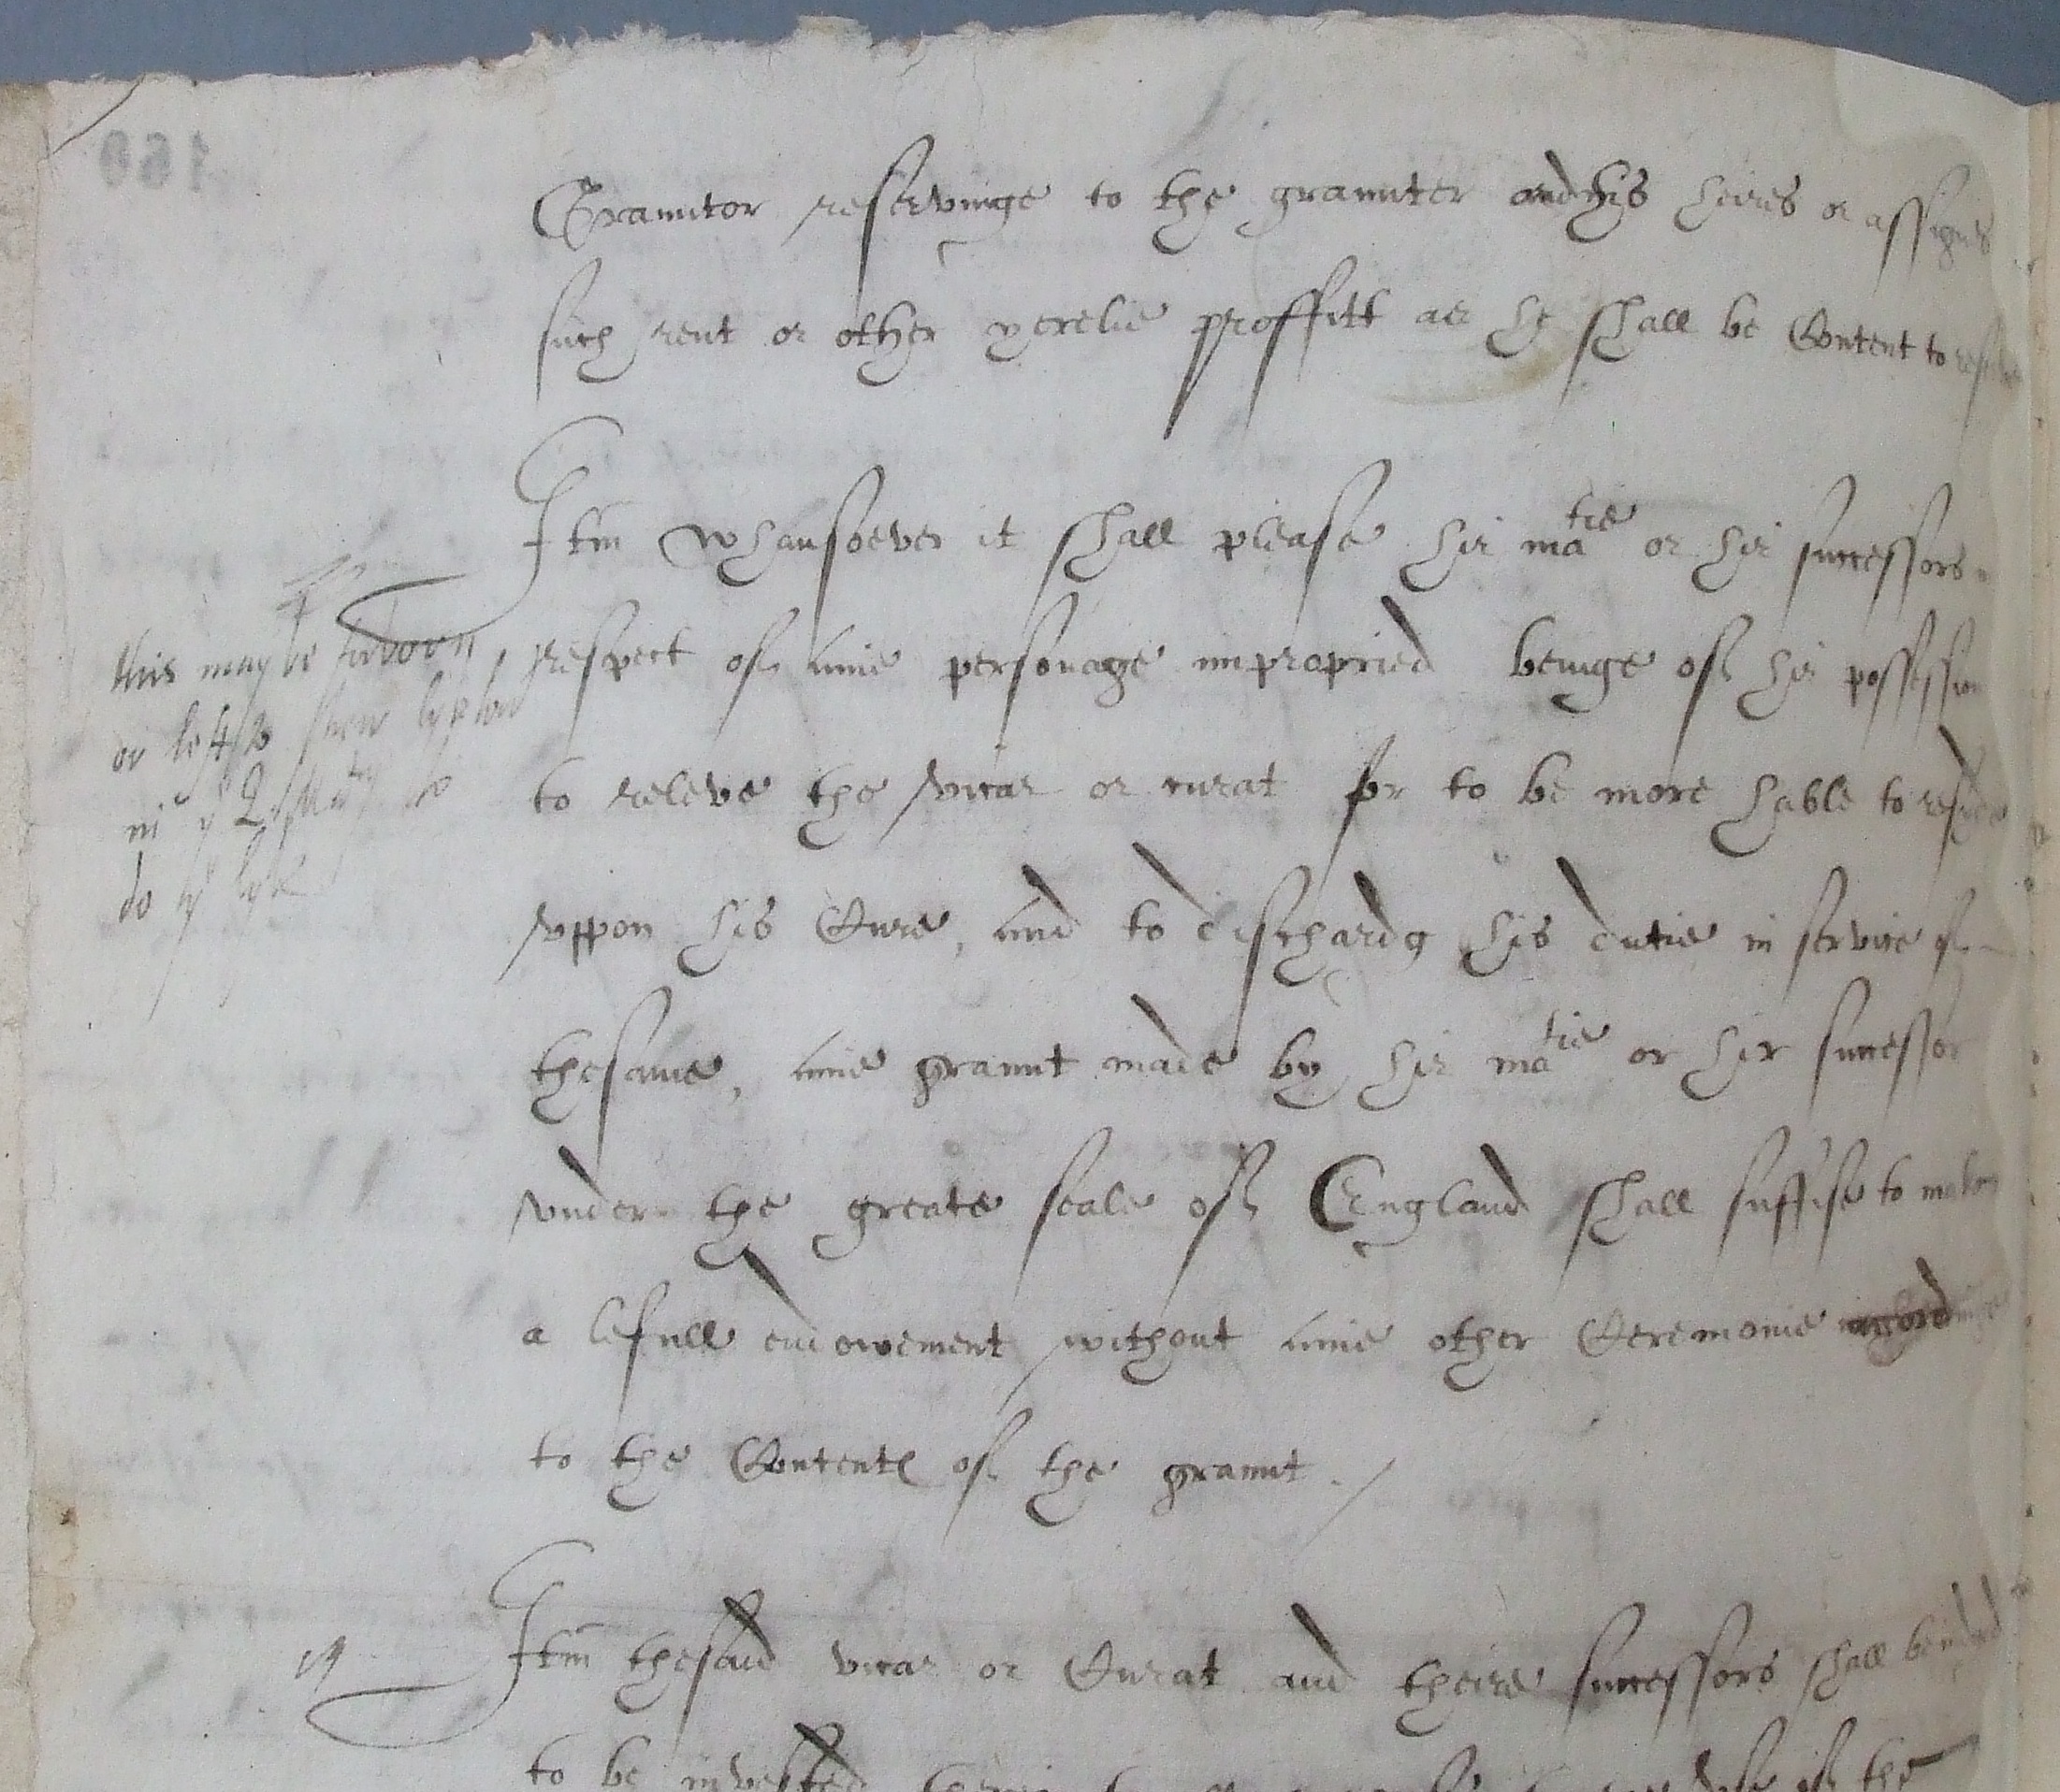 160
Grauntor reservinge to the graunter and his heires or assignes
such rent or other yerelie proffitt as he shall be Content to
Itm whansoever it shall please hir matie or hir successors
respect of anie personage impropried beinge of hir possession
to releve the vicar or curat for to be more hable to
uppon his Cure, and to dischardg his dutie in service of
thesame, anie graunt made by hir matie or hir successor
under the greate seale of England shall suffise to make
a lefull endowement without anie other Ceremonie
to the Contentes of the graunt./
this may be
or left to
in ye Q. Matie to
do ye lyke
Itm thesaid vicar or Curat and theire successors shall be
to be invested